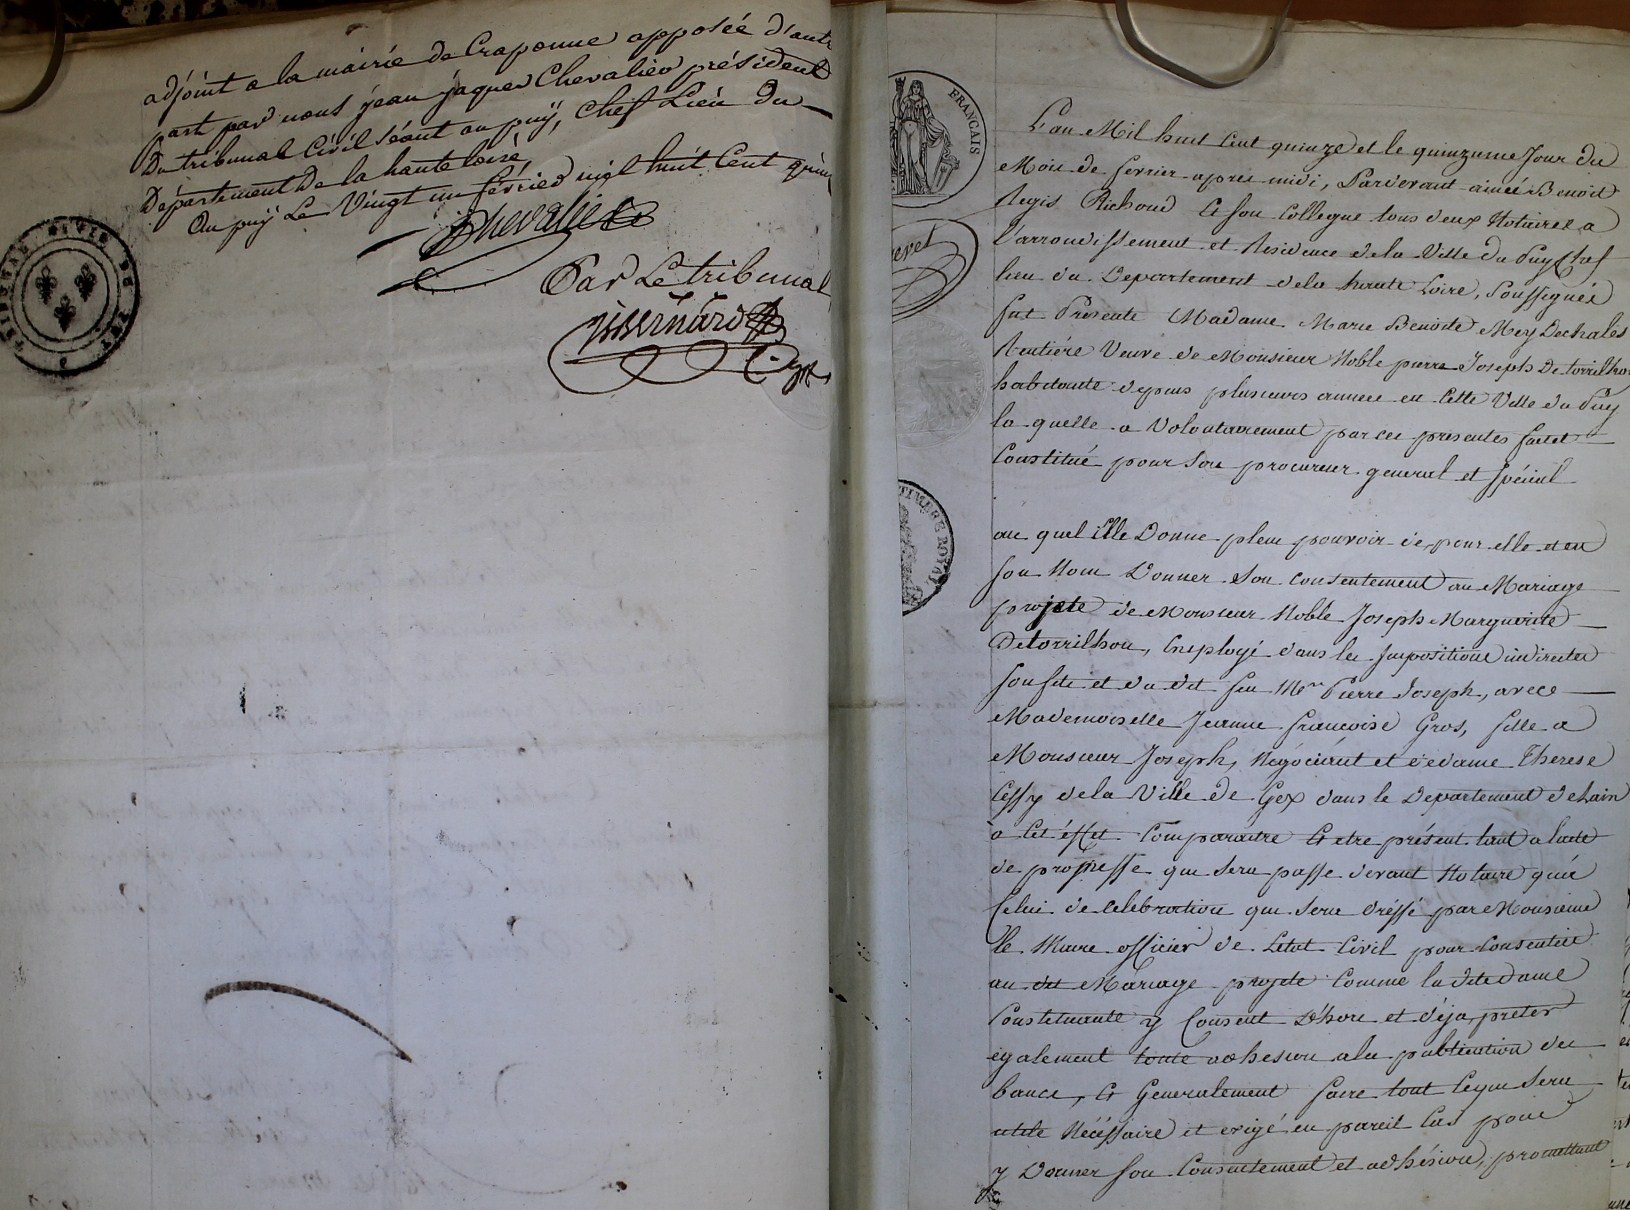 adjoint a la mairie de Craponne apposée d'autr
part par nous jean jaques Chevalier président
Du tribunal Civil séant au puÿ, Chef Lieu du
Département De la haute loire,
Au puÿ Le Vingt un février mil huit Cent quin
Chevalier
Par Le tribunal
TRIBUNAL CIVIL DU PUY
FRANCAIS
TIMBRE ROYAL
L'an Mil huit Cent quinze et le quinzieme Jour du
Mois de fevrier apres midi, Pardevant aimé Benoit
Regis Richond Et son Collegue tous deux Notaires a
l'arrondissement et Residence de la Ville du Puy Chef
lieu du Departement de la haute Loire, Soussignés
fut Presente Madame Marie Benoite Mey Dechales
Rentiére Veuve de Monsieur Noble pierre Joseph De torrilhon
habitante depuis plusieurs années en Cette Ville du Puy
la quelle a Volontairement par ces presentes fait et
Constitué pour Son procureur general et spécial
au quel Elle Donne plein pouvoir de, pour elle et en
son Nom Donner Son Consentement au Mariage
projeté de Monsieur Noble Joseph Marguerite
Detorrilhon, Employé dans les Impositions indirectes
son fils et du dit feu Mr Pierre Joseph, avec
Mademoiselle Jeanne francoise Gros, fille a
Monsieur Joseph, Négociant et de dame Therese
Cessy de la Ville de Gex dans le Departement de Lain
a Cet éffet Comparaitre Et etre présent tant a lacte
de promesse qui Sera passe devant Notaire qua
Celui de Celebration qui Sera dréssé par Monsieur
le Maire officier de Letat Civil pour Consentir
au dit Mariage projete Comme la dite dame
Constituante y Consent D'hors et déja, preter
également toute adhesion a la publication des
bancs, Et Generalement faire tout Ceque Sera
utile Nécéssaire et exigé en pareil Cas pour
y Donner son Consentement et adhésion, promettant